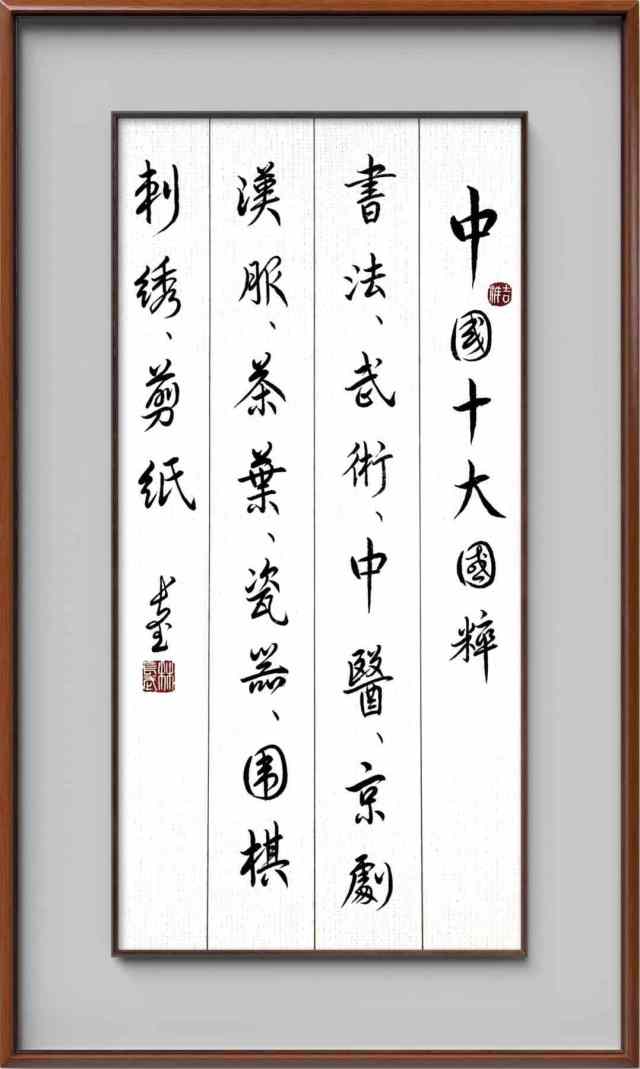 中國十大國粹
書法、武術、中醫、京劇
漢服、茶葉、瓷器、围棋
刺绣、剪纸